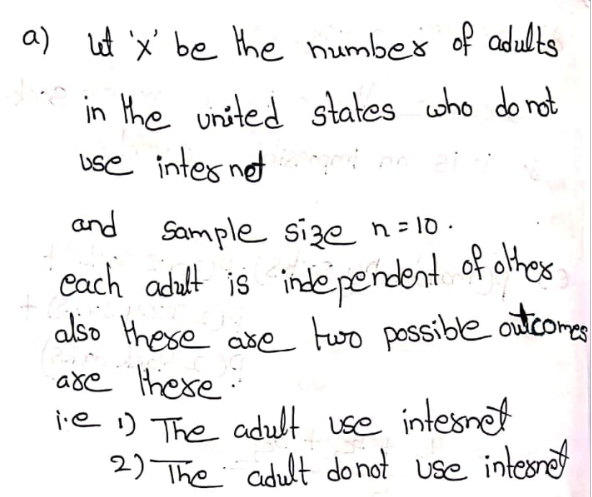 a) let 'x' be the number of adults
in the united states who do not
use internet
and sample size n = 10.
each adult is independent of other
also there are two possible outcomes
are there.
i.e 1) The adult use internet
2) The adult do not use internet